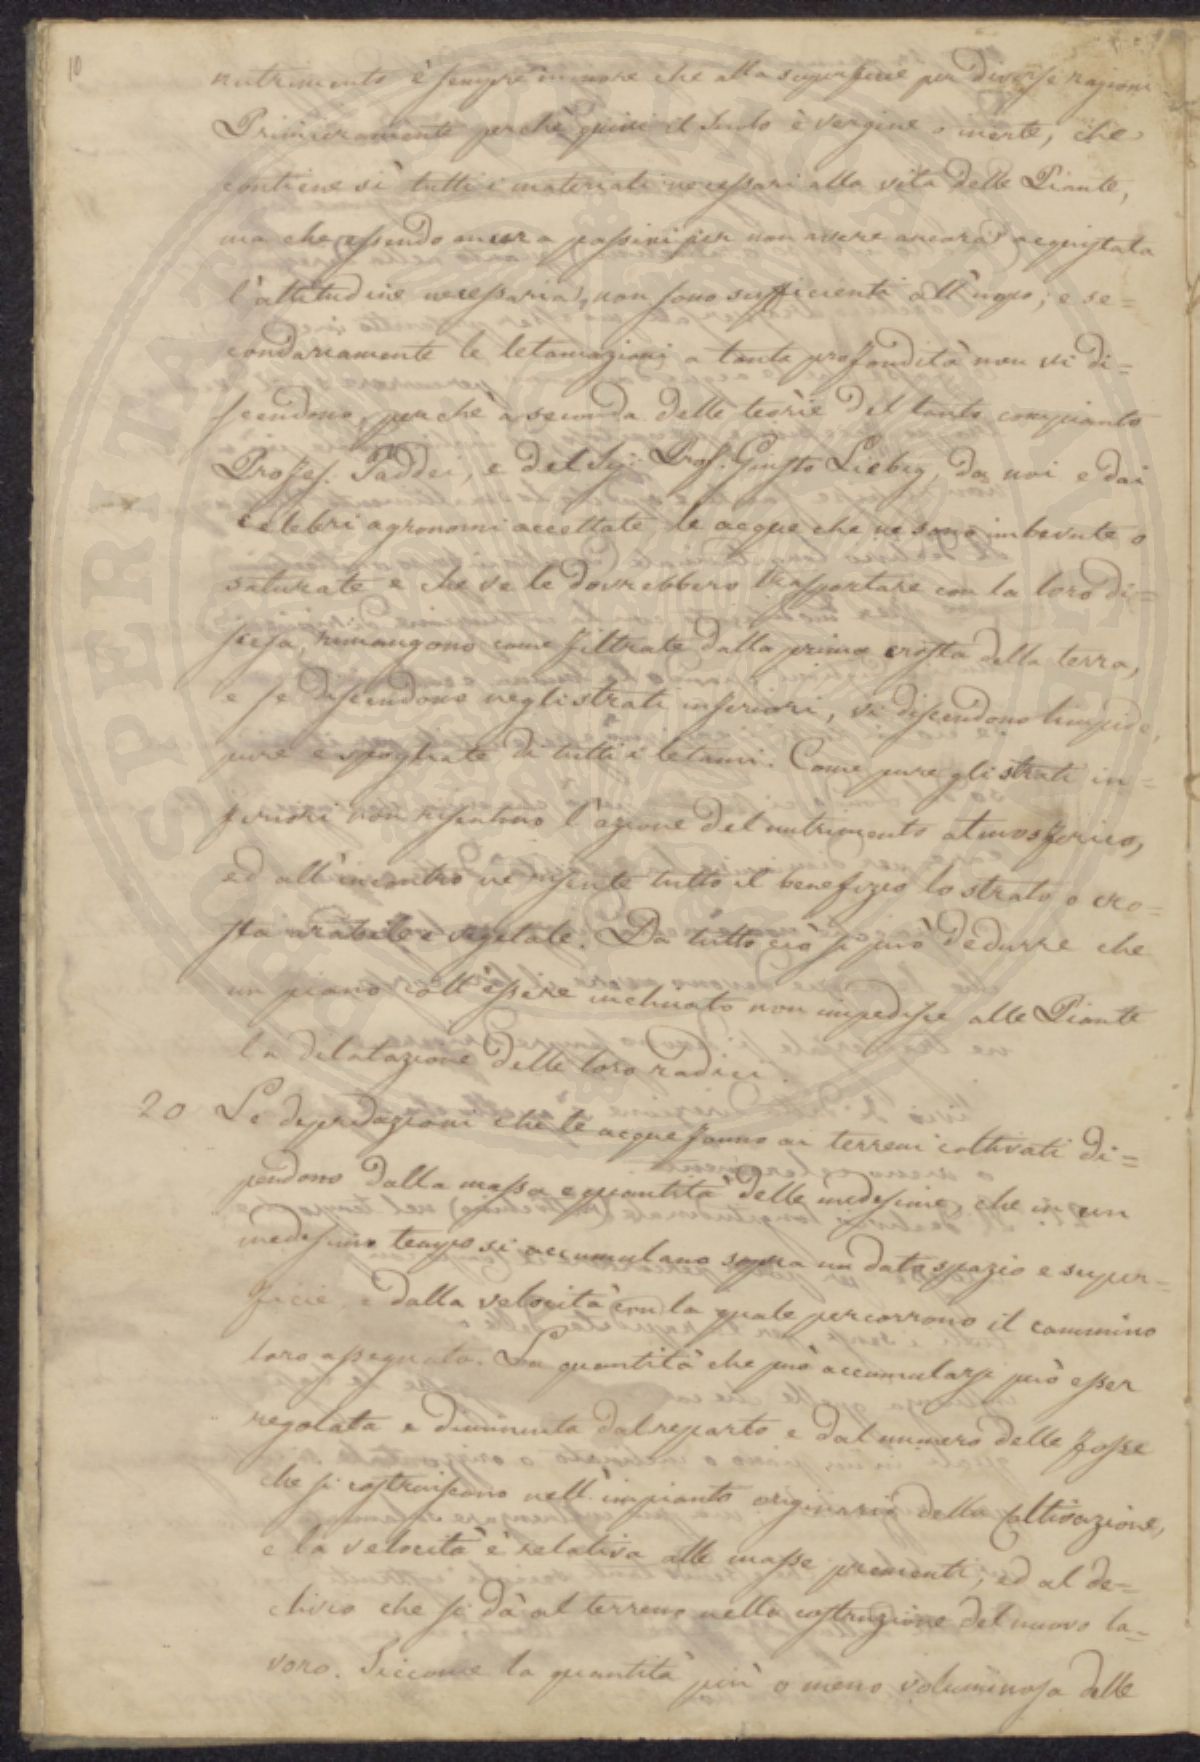 10
nutrimento è sempre minore che alla superficie per diverse ragioni
Primieramente perchè quivi il suolo è vergine o inerte, che
contiene sì tutti i materiali necessari alla vita delle Piante,
ma che essendo ancora passivi per non avere ancora acquistata
l'attitudine necessaria, non sono sufficienti all'uopo; e se=
condariamente le letamazioni a tanta profondità non vi di=
scendono, perchè a seconda delle teorie del tanto compianto
Profes. Taddei, e del Sig: Prof. Giusto Liebig, da noi e dai
celebri agronomi accettate le acque che ne sono imbevute o
saturate e che ve le dovrebbero trasportare con la loro di=
scesa, rimangono come filtrate dalla prima crosta della terra,
e se discendono negli strati inferiori, vi discendono limpide,
pure e spogliate di tutti i letami. Come pure gli strati in=
feriori non risentono l'azione del nutrimento atmosferico,
ed all'incontro ne risente tutto il benefizio lo strato o cro=
sta arabile e vegetale. Da tutto ciò si può dedurre che
un piano coll'essere inclinato non impedisce alle Piante
la dilatazione delle loro radici.
20 Le depredazioni che le acque fanno ai terreni coltivati di=
pendono dalla massa e quantità delle medesime, che in un
medesimo tempo si accumulano sopra un dato spazio e super=
ficie, e dalla velocità con la quale percorrono il cammino
loro assegnato. La quantità che può accumularsi può esser
regolata e diminuita dal reparto e dal numero delle fosse
che si costruiscono nell'impianto originario della Coltivazione,
e la velocità è relativa alle masse prementi, ed al de=
clivio che si dà al terreno nella costruzione del nuovo la=
voro. Siccome la quantità più o meno voluminosa delle
SPERITATE PUBLICA